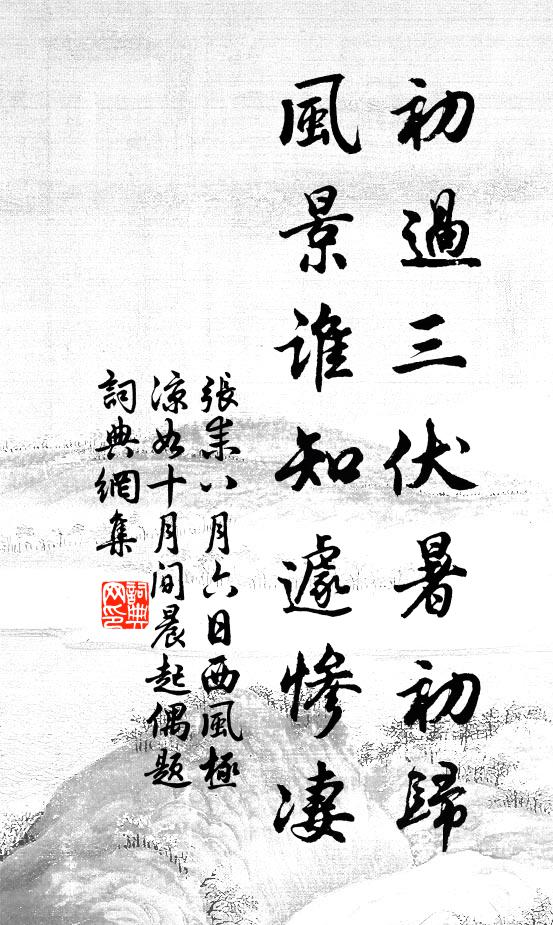 初過三伏暑初歸
風景誰知遽慘淒
張耒八月六日西風極
涼如十月間晨起偶題
詞典網集
詞典網印